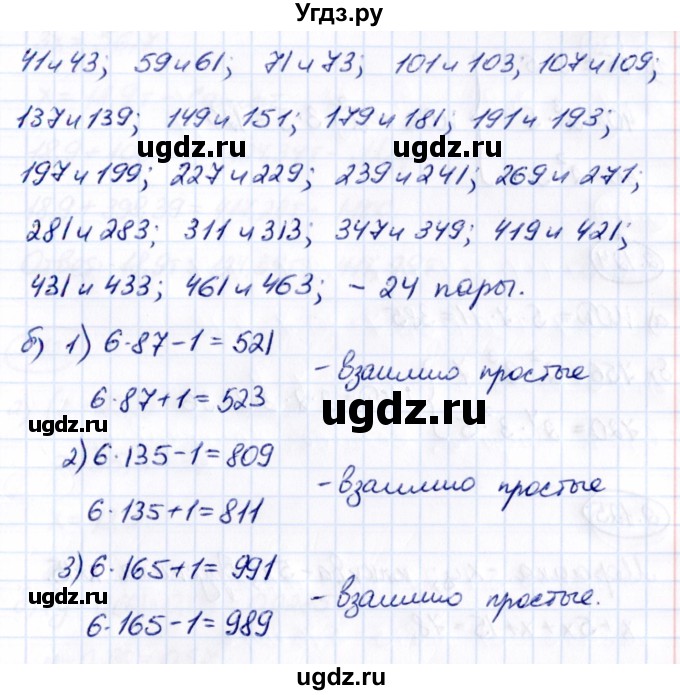 Угдз.ру
41 и 43; 59 и 61; 71 и 73; 101 и 103; 107 и 109;
137 и 139; 149 и 151; 179 и 181; 191 и 193;
ugdz.ru ugdz.ru
197 и 199; 227 и 229; 239 и 241; 269 и 271;
281 и 283; 311 и 313; 347 и 349; 419 и 421;
431 и 433; 461 и 463; – 24 пары.
б) 1) 6·87–1=521
– взаимно простые
6·87+1=523
ugdz.ru ugdz.ru
2) 6·135–1=809
– взаимно простые
6·135+1=811
3) 6·165+1=991
– взаимно простые.
ugdz.ru
6·165–1=989
ugdz.ru